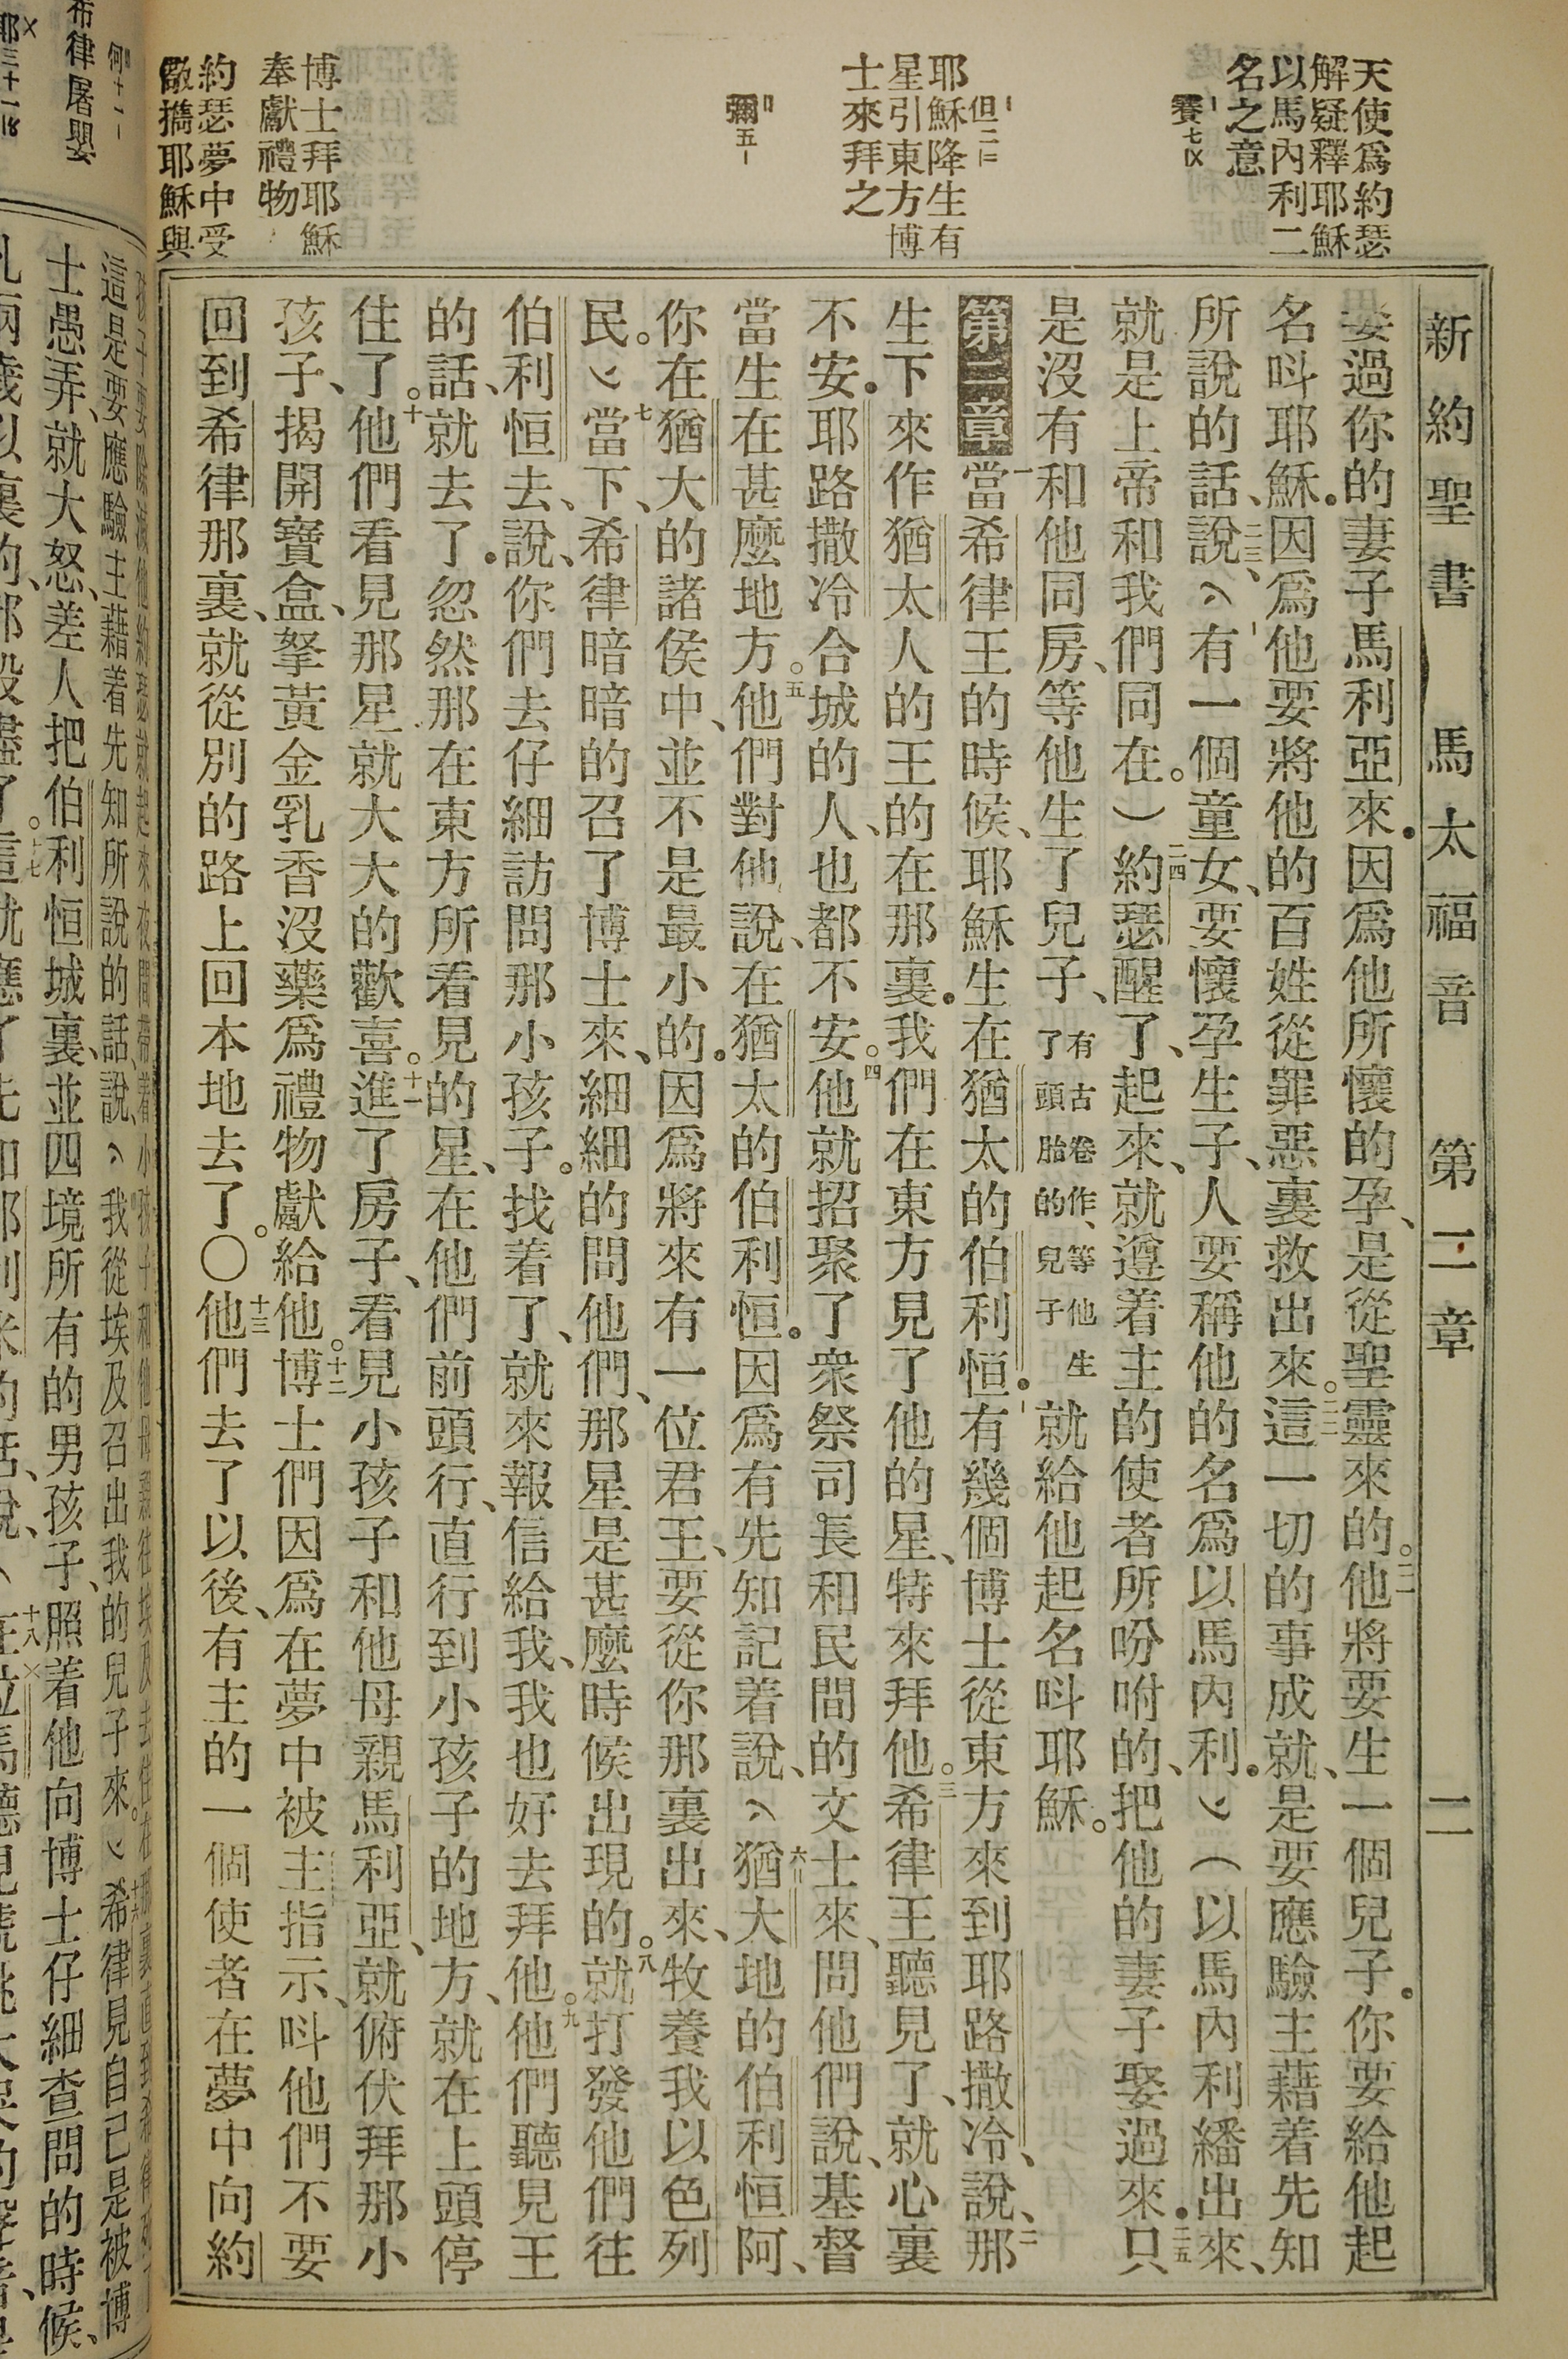 新約聖書　馬太福音　第二章　二
天使爲約瑟
解疑釋耶穌
以馬內利二
名之意
賽七
但二
耶穌降生有
星引東方博
士來拜之
彌五
博士拜耶穌
奉獻禮物
約瑟夢中受
儆攜耶穌與
娶過你的妻子馬利亞來．因爲他所懷的孕、是從聖靈來的。二一他將要生一個兒子．你要給他起
名呌耶穌．因爲他要將他的百姓從罪惡裏救出來。二二這一切的事成就、是要應驗主藉着先知
所說的話、說、二三有一個童女、要懷孕生子、人要稱他的名爲以馬內利．（以馬內利繙出來、
就是上帝和我們同在。）二四約瑟醒了、起來、就遵着主的使者所吩咐的、把他的妻子娶過來．二五只
是沒有和他同房、等他生了兒子、有古卷作、等他生了頭胎的兒子就給他起名呌耶穌。
第二章 一當希律王的時候、耶穌生在猶太的伯利恒．有幾個博士從東方來到耶路撒冷、說、二那
生下來作猶太人的王的、在那裏．我們在東方見了他的星、特來拜他。三希律王聽見了、就心裏
不安．耶路撒冷合城的人、也都不安。四他就招聚了衆祭司長和民間的文士來、問他們說、基督
當生在甚麼地方。五他們對他說、在猶太的伯利恒．因爲有先知記着說、六猶大地的伯利恒阿、
你在猶大的諸侯中、並不是最小的．因爲將來有一位君王、要從你那裏出來、牧養我以色列
民。七當下、希律暗暗的召了博士來、細細的問他們、那星是甚麼時候出現的。八就打發他們往
伯利恒去、說、你們去仔細訪問那小孩子。找着了、就來報信給我、我也好去拜他。九他們聽見王
的話、就去了．忽然那在東方所看見的星、在他們前頭行、直行到小孩子的地方、就在上頭停
住了。十他們看見那星、就大大的歡喜。十一進了房子、看見小孩子和他母親馬利亞、就俯伏拜那小
孩子、揭開寶盒、拏黃金乳香沒藥爲禮物獻給他。十二博士們因爲在夢中被主指示、呌他們不要
回到希律那裏、就從別的路上回本地去了。○十三他們去了以後、有主的一個使者在夢中向約
何十一
希律屠嬰
這是要應驗主藉着先知所說的話、說、我從埃及召出我的兒子來。十六希律見自己是被博
士愚弄、就大大怒、差人把伯利恒城裏、並四境所有的男孩子、照着他向博士仔細查問的時候、